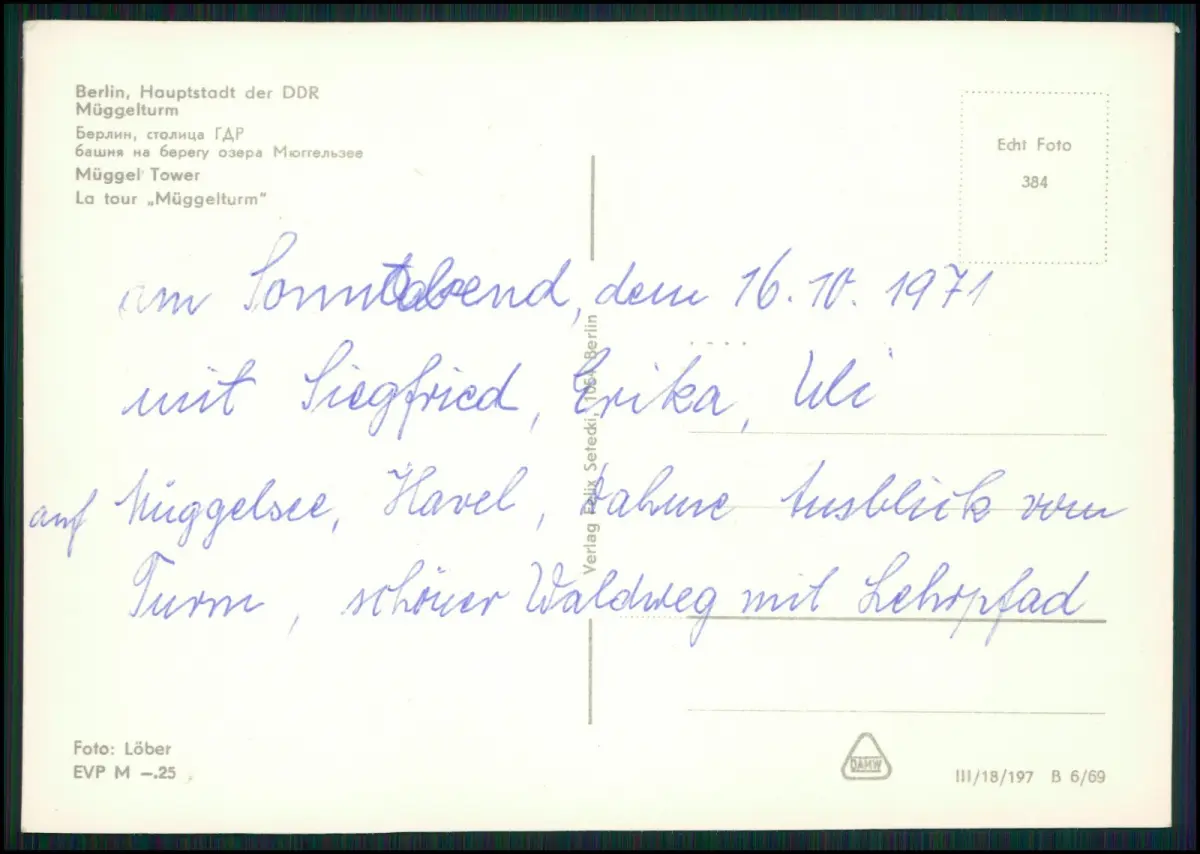 Berlin, Hauptstadt der DDR
Müggelturm
Берлин, столица ГДР
башня на берегу озера Мюггельзее
Müggel Tower
La tour „Müggelturm"
Echt Foto
384
am Sonnabend, dem 16.10.1971
mit Siegfried, Erika, Uli
auf Müggelsee, Havel, Dahme Ausblick vom
Turm, schöner Waldweg mit Lehrpfad
Verlag Felix Setecki, 1054 Berlin
Foto: Löber
EVP M –.25
DAMW
III/18/197 B 6/69